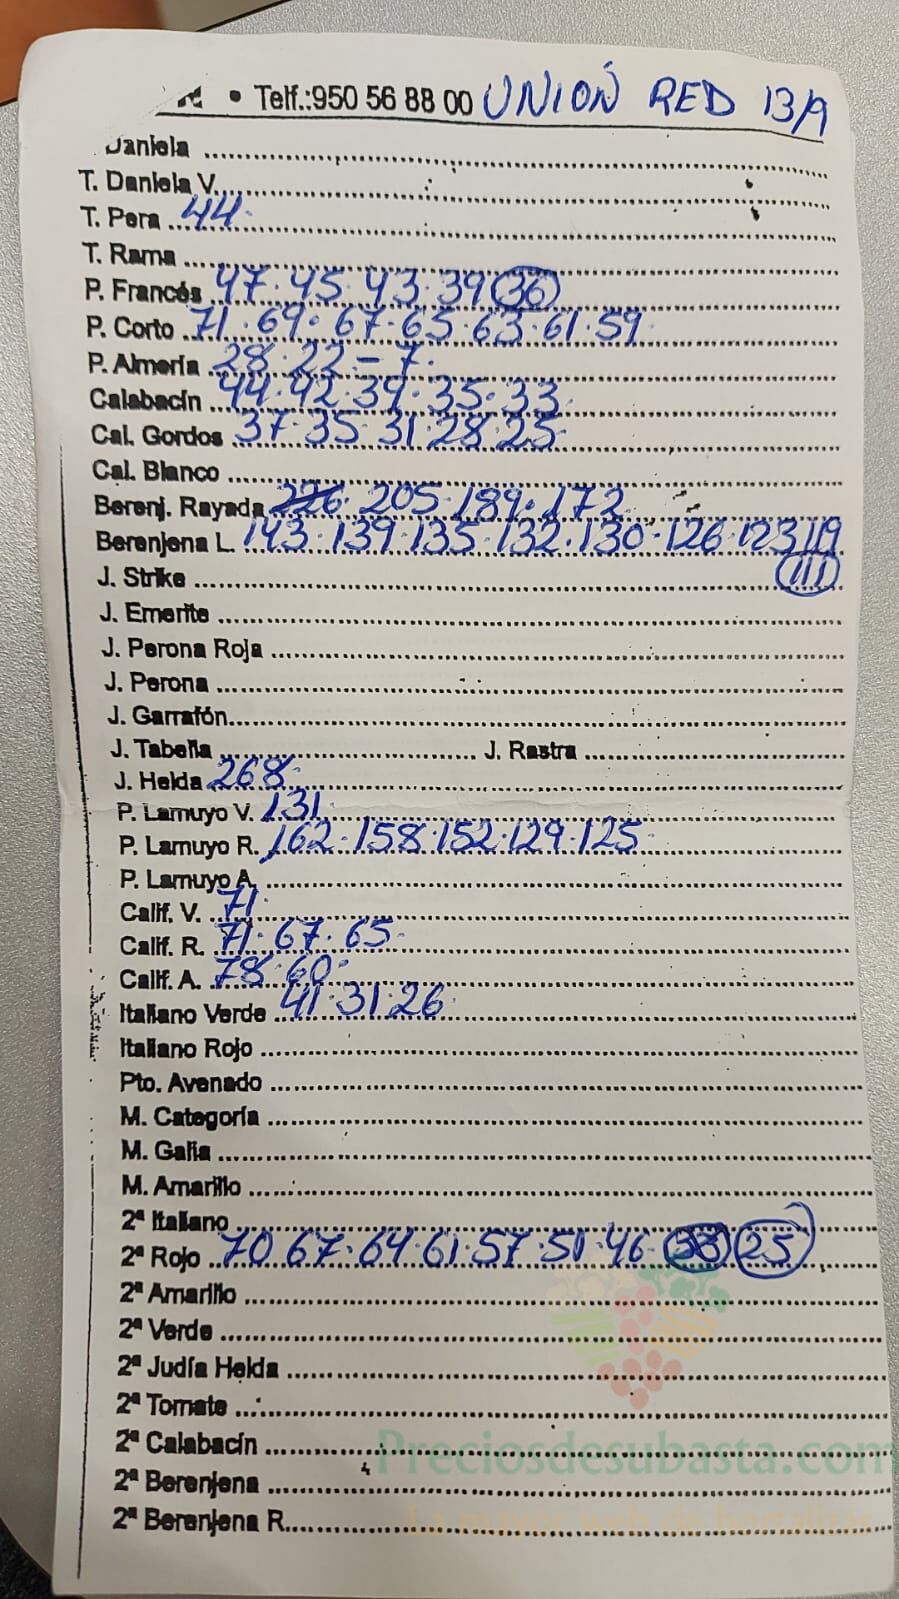 • Telf.:950 56 88 00 UNIÓN RED 13/9
Daniela
T. Daniela V.
T. Pera 44.
T. Rama
P. Francés 47.45.43.39 36
P. Corto 71.69.67.65.63.61.59
P. Almería 28.22-7.
Calabacín 44.42.39.35.33.
Cal. Gordos 37.35.31.28.25
Cal. Blanco
Berenj. Rayada 226.205.189.172
Berenjena L. 143.139.135.132.130.126.123 119
111
J. Strike
J. Emerite
J. Perona Roja
J. Perona
J. Garrafón
J. Tabella J. Rastra
J. Helda 268.
P. Lamuyo V. 131.
P. Lamuyo R. 162.158.152.129.125.
P. Lamuyo A.
Calif. V. 71.
Calif. R. 71.67.65.
Calif. A. 78.60.
Italiano Verde 41.31.26.
Italiano Rojo
Pto. Avenado
M. Categoría
M. Galia
M. Amarillo
2ª Italiano
2ª Rojo 70 67.64.61.57.51.46. 25
2ª Amarillo
2ª Verde
2ª Judía Helda
2ª Tomate
2ª Calabacín
2ª Berenjena
2ª Berenjena R.
Preciosdesubasta.com
La mayor web de hortalizas